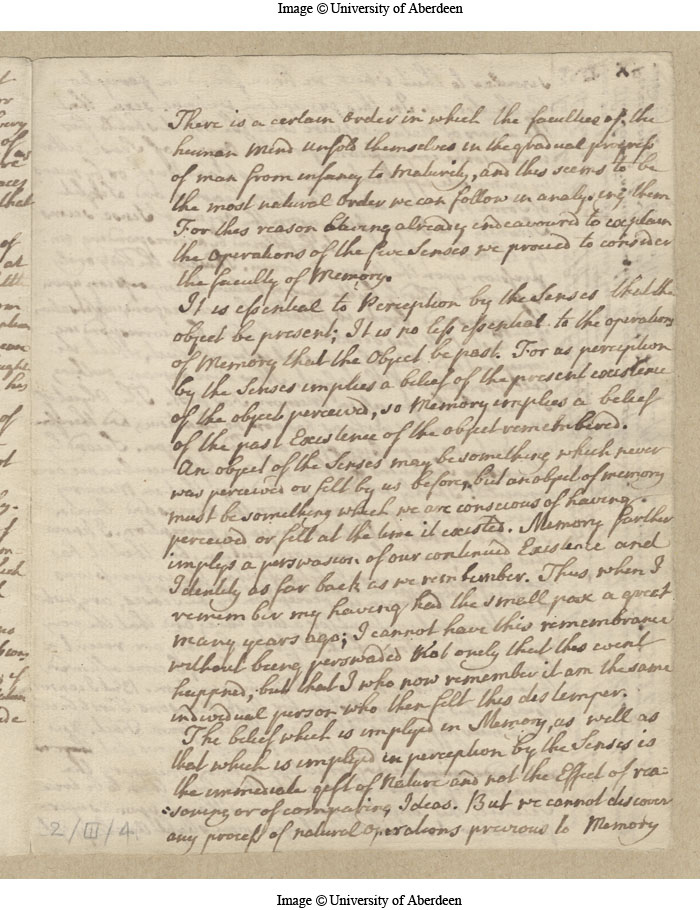 Image © University of Aberdeen
There is a certain order in which the faculties of the
human Mind unfold themselves in the gradual progress
of man from infancy to maturity, and this seems to be
the most natural order we can follow in analysing them
For this reason having already endeavoured to explain
the Operations of the five Senses we proceed to consider
the faculty of Memory.
It is essential to Perception by the Senses that the
object be present; It is no less essential to the operations
of Memory that the Object be past. For as perception
by the Senses implies a belief of the present existence
of the object perceived, so Memory implies a belief
of the past Existence of the object remembered.
An object of the Senses may be something which never
was perceived or felt by us before, but an object of memory
must be something which we are conscious of having
perceived or felt at the time it existed. Memory farther
implys a perswasion of our continued Existence and
Identity as far back as we remember. Thus, when I
remember my having had the small pox a great
many years ago; I cannot have this remembrance
without being perswaded not onely that this event
happned, but that I who now remember it am the same
individual person who then felt this distemper.
The belief which is implyed in Memory, as well as
that which is implyed in perception by the Senses is
the immediate gift of Nature and not the Effect of rea-
soning or of comparing Ideas. But we cannot discover
any process of natural Operations previous to Memory
2/III/4
Image © University of Aberdeen